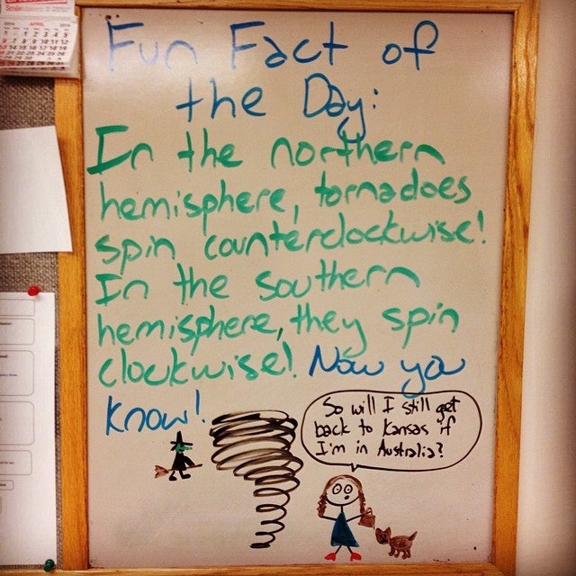 Fun Fact of
the Day:
In the northern
hemisphere, tornadoes
spin counterclockwise!
In the southern
hemisphere, they spin
clockwise! Now you
know!
So will I still get
back to Kansas if
I'm in Australia?
APRIL